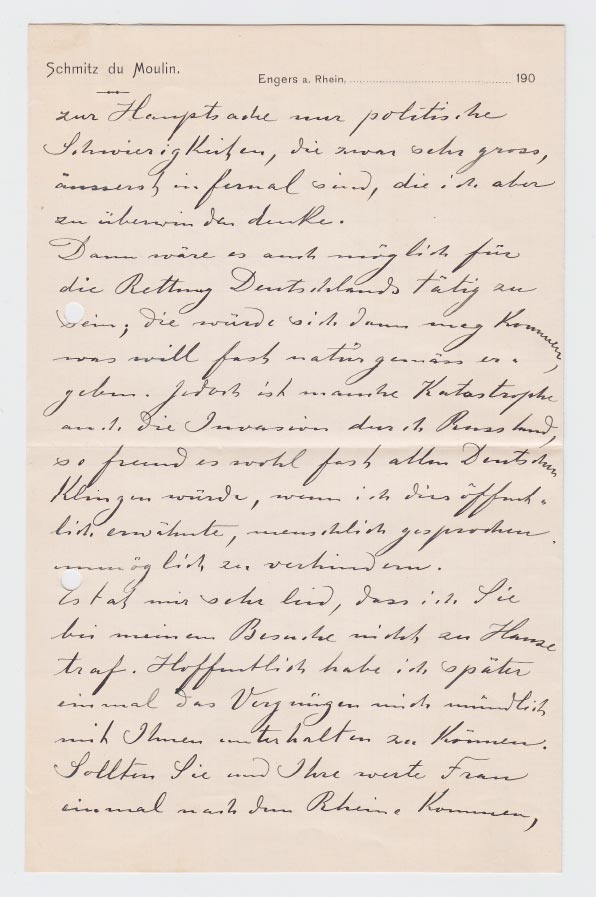 Schmitz du Moulin.
Engers a. Rhein, 190
zur Hauptsache nur politische
Schwierigkeiten, die zwar sehr gross,
äusserst infernal sind, die ich aber
zu überwinden denke.
Dann wäre es auch möglich für
die Rettung Deutschlands tätig zu
sein; die würde sich dann mag kommen,
was will fast naturgemäss er-
geben. Jedoch ist manche Katastrophe
auch die Invasion durch Russland,
so fremd es wohl fast allen Deutschen
Klingen würde, wenn ich dies öffent-
lich erwähnte, menschlich gesprochen
unmöglich zu verhindern.
Es tat mir sehr leid, dass ich Sie
bei meinem Besuche nicht zu Hause
traf. Hoffentlich habe ich später
einmal das Vergnügen mich mündlich
mit Ihnen unterhalten zu Können.
Sollten Sie und Ihre werte Frau
einmal nach dem Rheine Kommen,